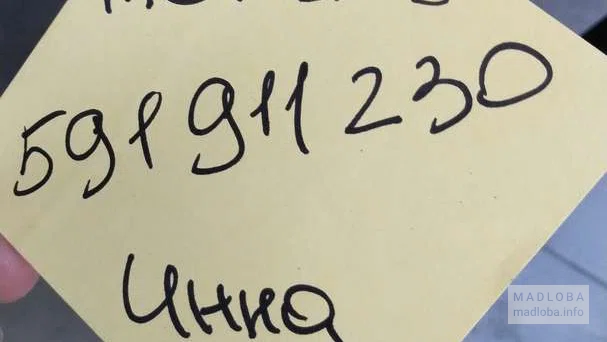 591 911 230
Инна
MADLOBA
madloba.info